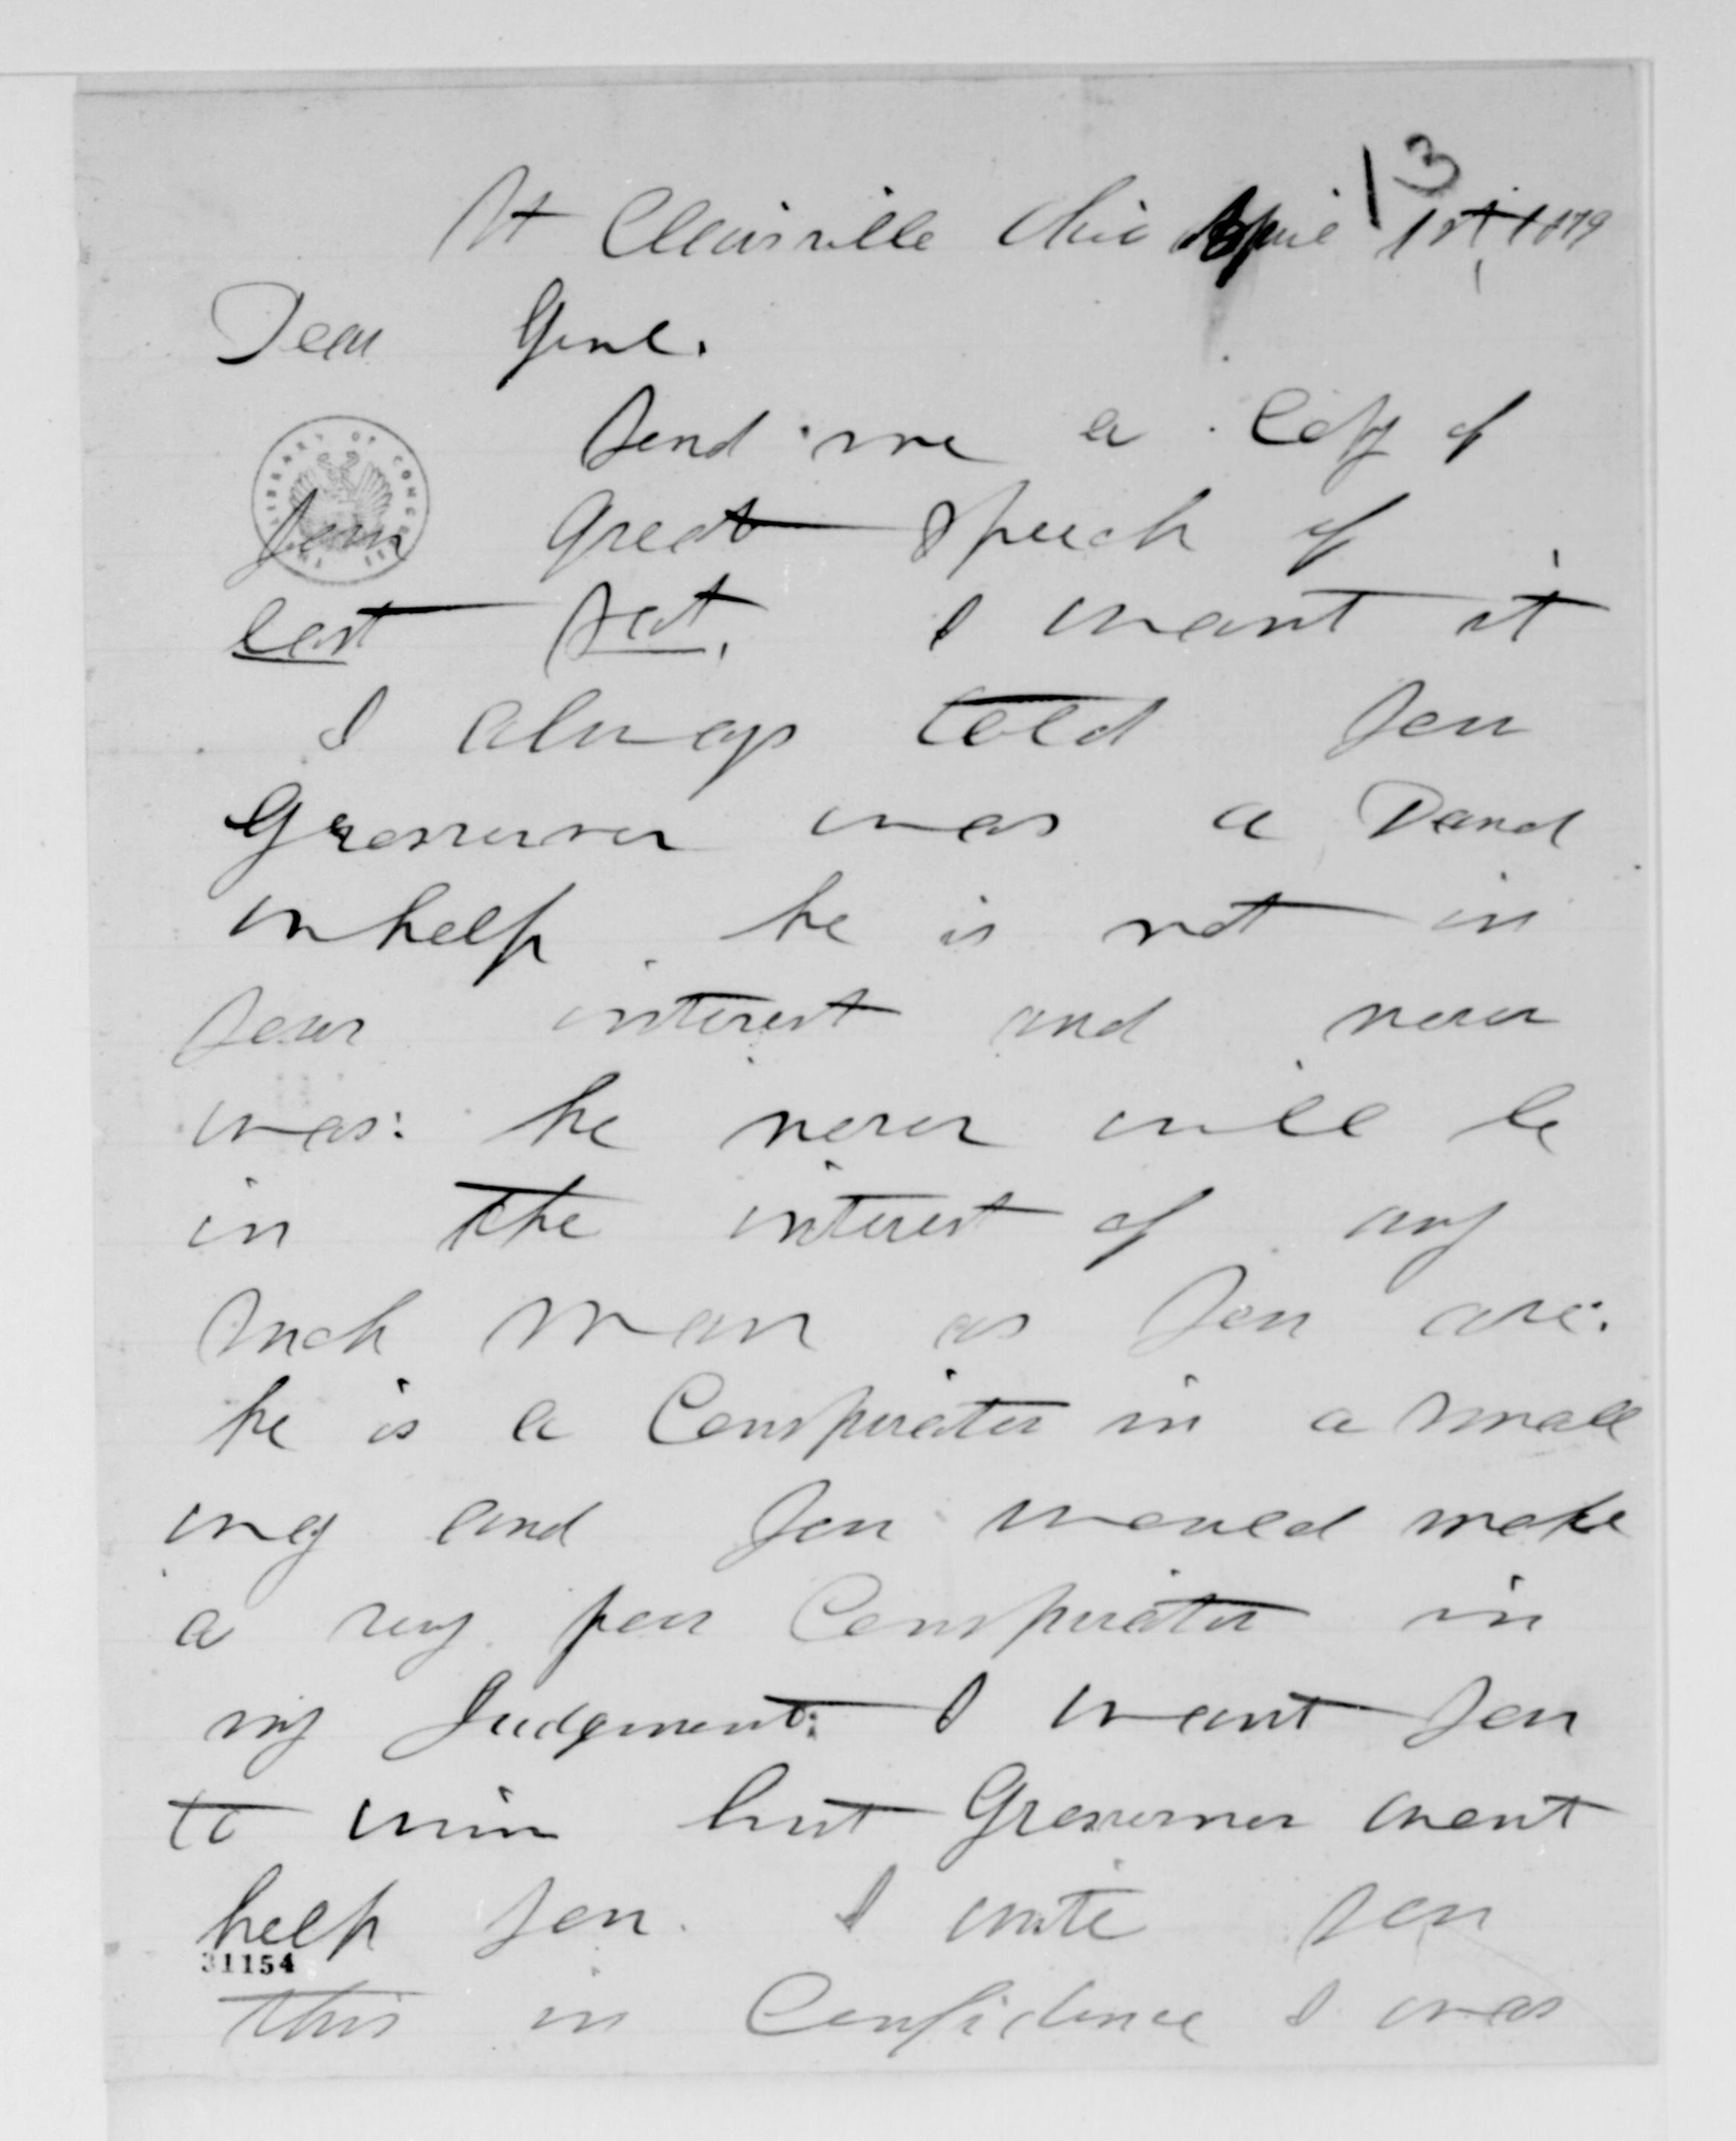 13
St Clairsville Ohio April 1st, 1879
Dear Genl.
Send me a Copy of
LIBRARY OF CONGRESS
your great speech of
last Sat. I want it
I always told you
Grosvenor was a Damd
whelp he is not in
your interest and never
was: he never will be
in the interest of any
such man as you are:
he is a Conspirator in a small
way and you would make
a very poor Conspirator in
my Judgment: I want you
to win but Grosvenor wont
help you. I write you
31154
this in Confidence I was